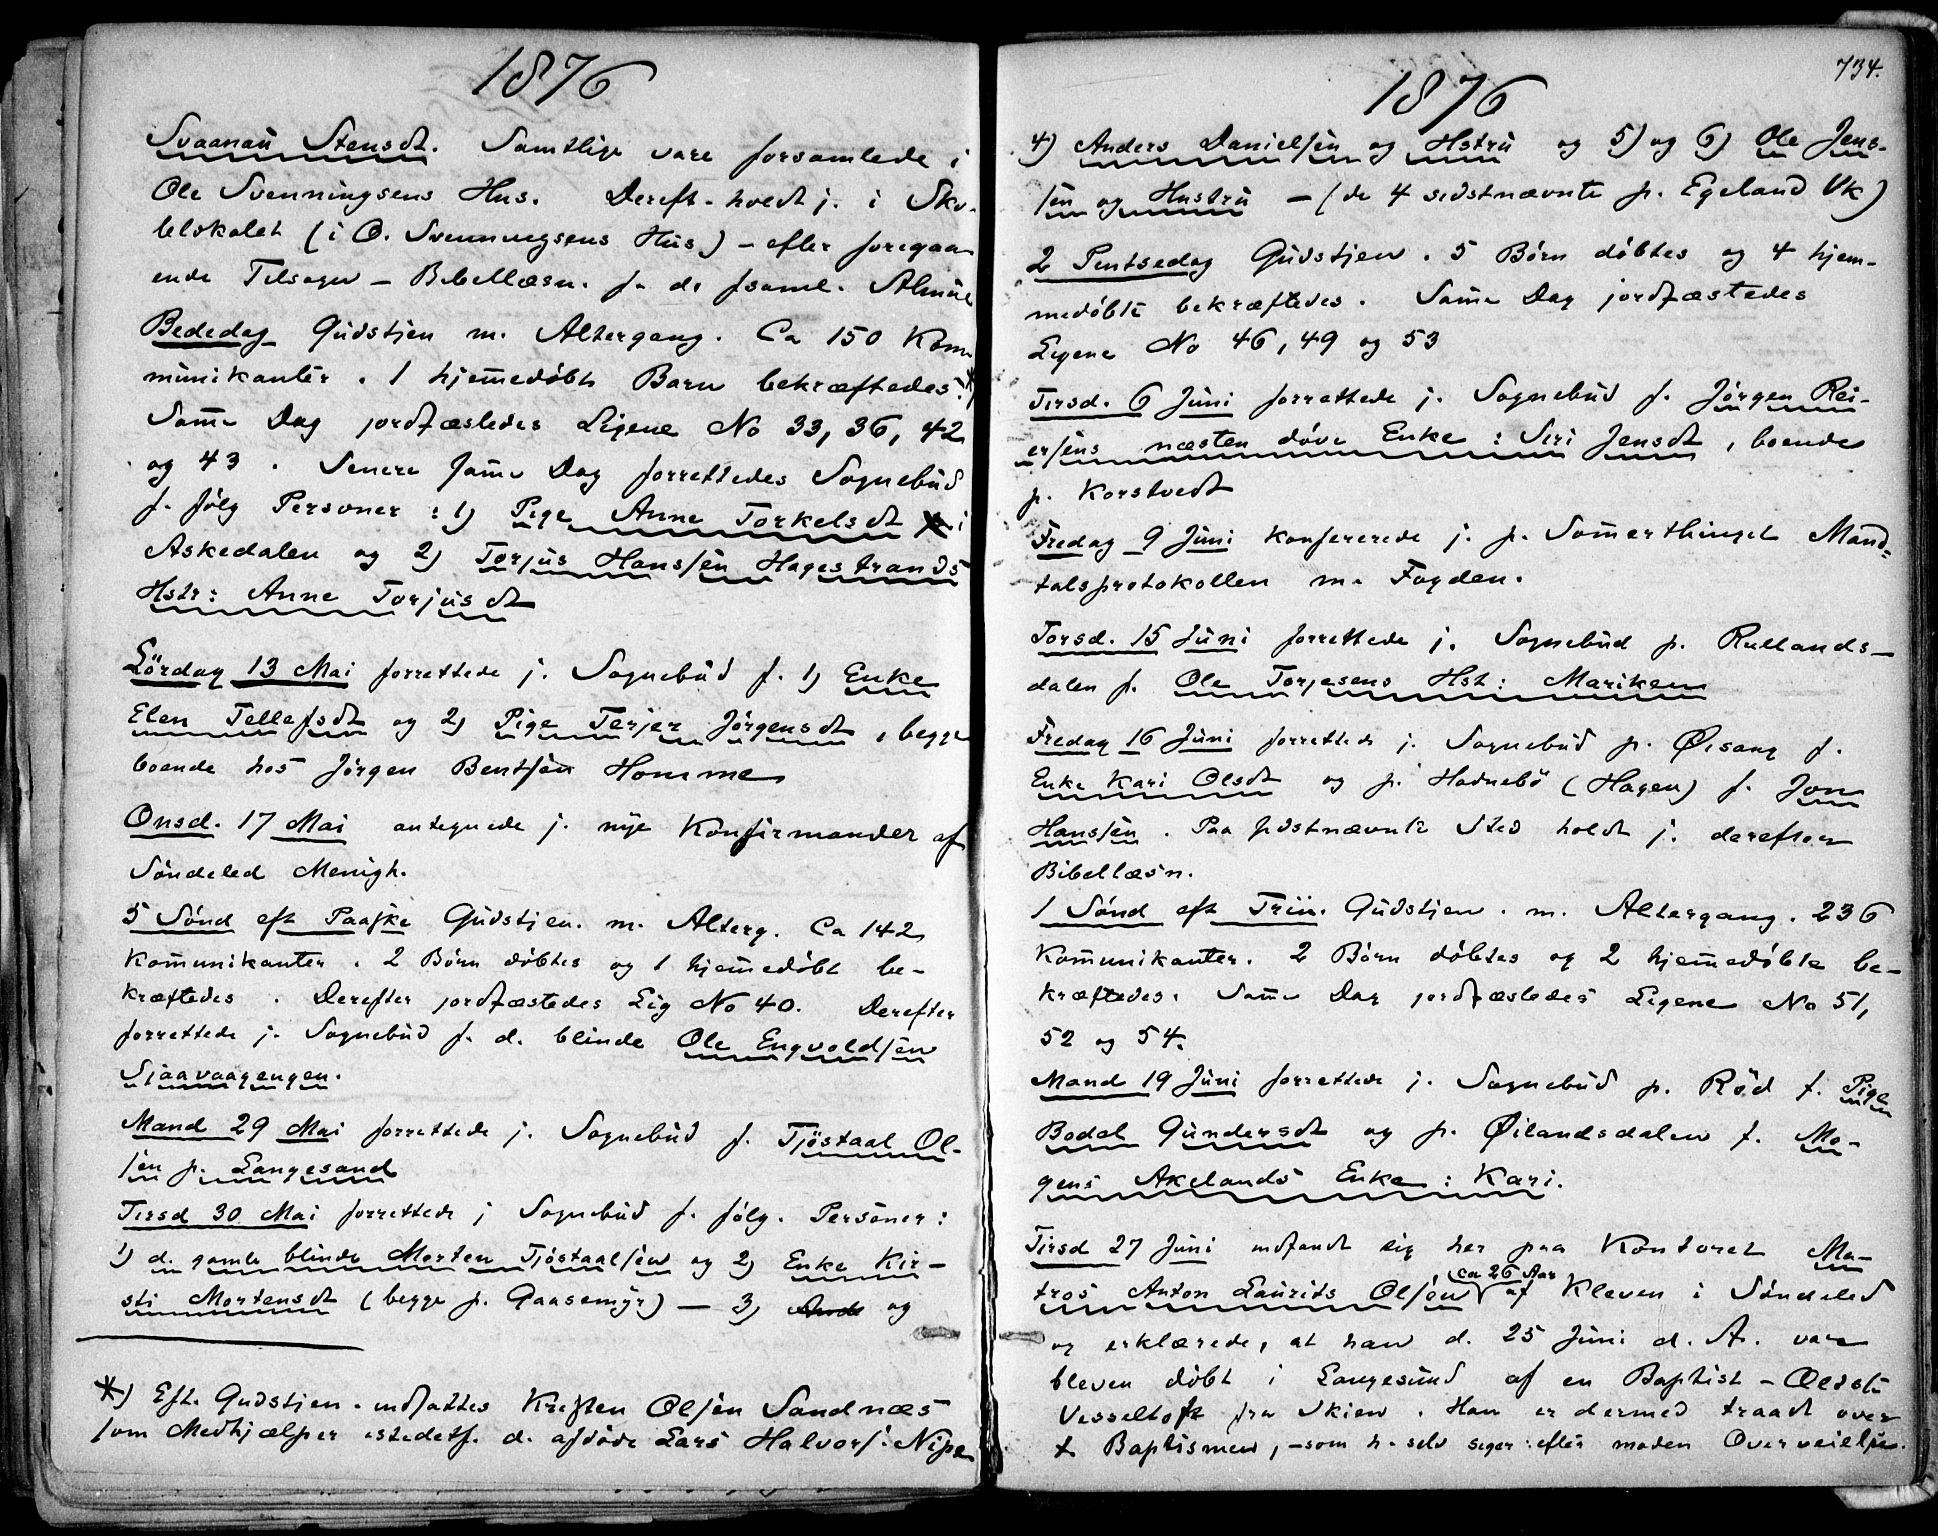 1876
Svaanaú Stensdt. Samtlige vare forsamlede i
Ole Svenningsens Hus. Dereft. holdt j. i Sko-
lelokalet (i O. Svenningsens Hús) – efter foregaa-
ende Tilsagn – Bibellæsn. f. d. fsaml. Almúe
Bededag Gúdstjen m. Altergang. Ca 150 Kom-
múnikanter. 1 hjemedøbt Barn bekræftedes. *)
Same Dag jordfæstedes Ligene No 33, 36, 42
og 43. Senere same Dag forrettedes Sognebúd
f. følg Personer: 1) Pige Anne Torkelsdt i
Askedalen og 2) Torjús Hansøn Hagestrands
Hstr: Anne Torjúsdt
Lördag 13 Mai forrettede j. Sognebúd f. 1) Enke
Elen Tellefsdt og 2) Pige Terjer Jörgensdt, begge
boende hos Jörgen Bentsen Homme
Onsd. 17 Mai antegnede j. nye Konfirmander af
Söndeled Menigh.
5 Sönd eft Paaske Gúdstjen. m. Alterg. Ca 142
Komunikanter. 2 Børn døbtes og 1 hjemedøbt be-
kræftedes. Derefter jordfæstedes Lig No 40. Derefter
forrettede j. Sognebúd f. d. blinde Ole Engvoldsen
Sjaavaagengen.
Mand 29 Mai forrettede j. Sognebúd f. Tjöstaal Ol-
sen p. Langesand
Tirsd 30 Mai forrettede j Sognebúd f. følg. Personer:
1) d. gamle blinde Morten Tjöstaalsen og 2) Enke Kir-
sti Mortensdt (begge p. Gaasemýr) – 3) og
*) Eft. Gudstjen. indsattes Kristen Olsen Sandnæs
som Medhjælper istedetf. d. afdöde Lars Halvors. Nipe
734.
1876
4) Anders Danielsen og Hstrú og 5) og 6) Ole Jens-
sen og Hústrú – (de 4 sidstnævnte p. Egeland Vk)
2 Pintsedag Gúdstjen. 5 Børn døbtes og 4 hjem-
medøbte bekræftedes. Same Dag jordfæstedes
Ligene No 46, 49 og 53
Tirsd. 6 Júni forrettede j. Sognebúd f. Jörgen Rei-
ersens næsten døve Enke: Siri Jensdt, boende
p. Korstvedt
Fredag 9 Júni konfererede j. p. Somerthinget Mand-
talsprotokollen m. Fogden.
Torsd. 15 Júni forrettede j. Sognebúd p. Rullands-
dalen f. Ole Torjesens Hst: Mariken
Fredag 16 Júni forrettede j. Sognebúd p. Øisang f.
Enke Kari Olsdt og p. Hadnebö (Hagen) f. Jon
Hansen. Paa sidstnævnte Sted holdt j. derefter
Bibellæsn.
1 Sönd eft Trin. Gúdstjen. m. Altergang. 236
Komunikanter. 2 Børn døbtes og 2 hjemedøbte be-
kræftedes. Same Dag jordfæstedes Ligene No 51,
52 og 54.
Mand 19 Júni forrettede j. Sognebúd p. Röd f. Pige
Bodel Gúndersdt og p. Øilandsdalen f. Mo-
gens Akelands Enke: Kari.
Tirsd 27 Júni indfandt sig her paa Kontoret Ma-
tros Anton Laúrits Olsen ca 26 Aar af Kleven i Söndeled
og erklærede, at han d. 25 Júni d. A. var
bleven døbt i Langesúnd af en Baptist-Oeldste
Vesseltoft fra Skien. Han er dermed traadt over
t. Baptismen, – som h. selv siger: efter moden Overveielse.